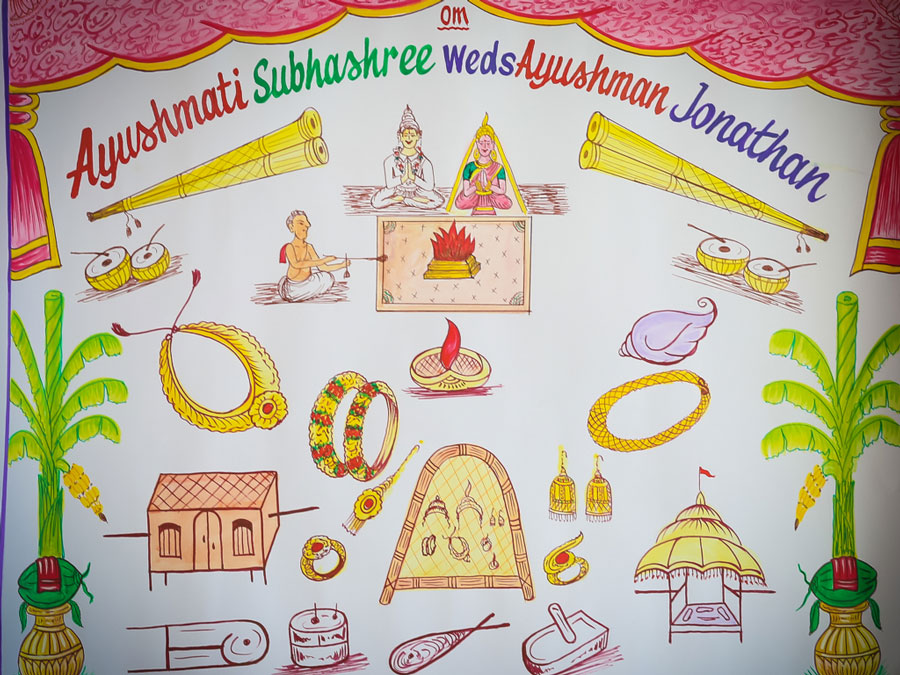 OM
Ayushmati Subhashree Weds Ayushman Jonathan